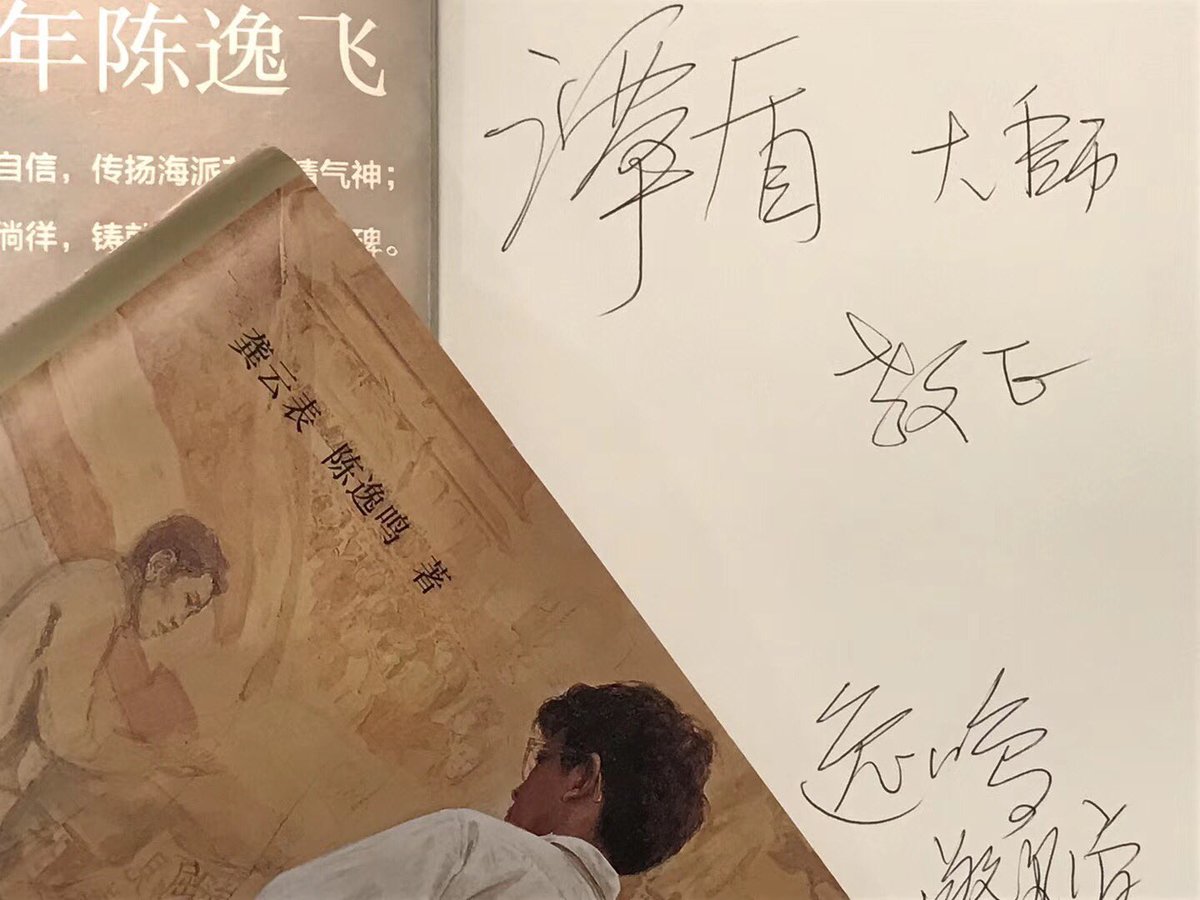 年陈逸飞
自信，传扬海派 精气神；
徜徉，铸就 碑。
龚云表 陈逸鸣 著
谭盾 大师
教正
逸鸣
敬赠